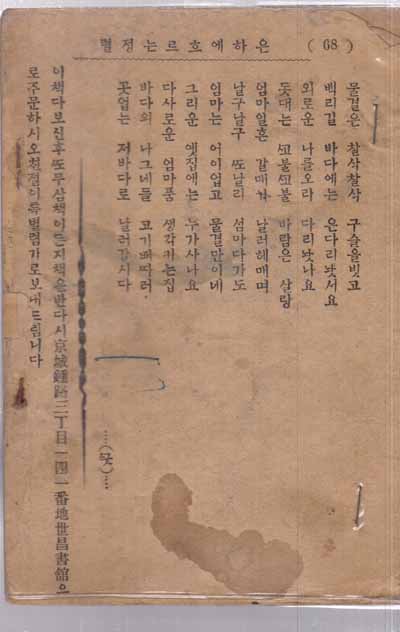 (68) 은하에흐르는정렬
물결은 찰삭찰삭 구슬을빗고
백리길 바다에는 은다리놧서요
외로운 나를오라 다리놧나요
돗대는 ᄭᅩ불ᄭᅩ불 바람은 살랑
엄마일흔 갈매가 날러헤매며
날구날구 ᄯᅩ날리 섬마다가도
엄마는 어이업고 물결만이네
그리운 옛집에는 누가사나요
다사로운 엄마품 생각키는집
바다의 나그네들 고기ᄯᅦᄯᅡ러
ᄭᅳᆺ업는 저바다로 날러갑시다
…(ᄭᅳᆺ)…
이책다보신후ᄯᅩ무삼책이든지책은반다시京城鍾路三丁目一四一番地世昌書館으
로주문하시오친절이특별렴가로보내드림니다